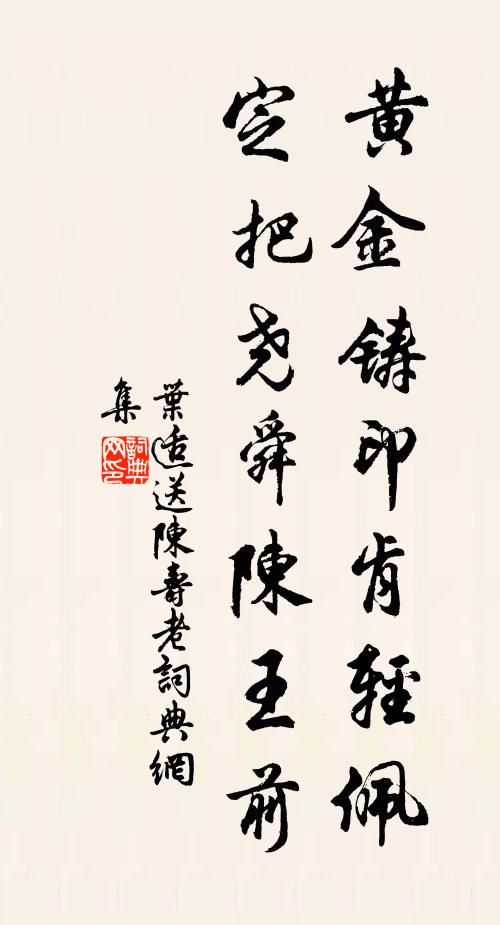 黄金鋳印肯輕佩
定把尧舜陳王前
葉适送陳壽老詞典網
集
詞典网印